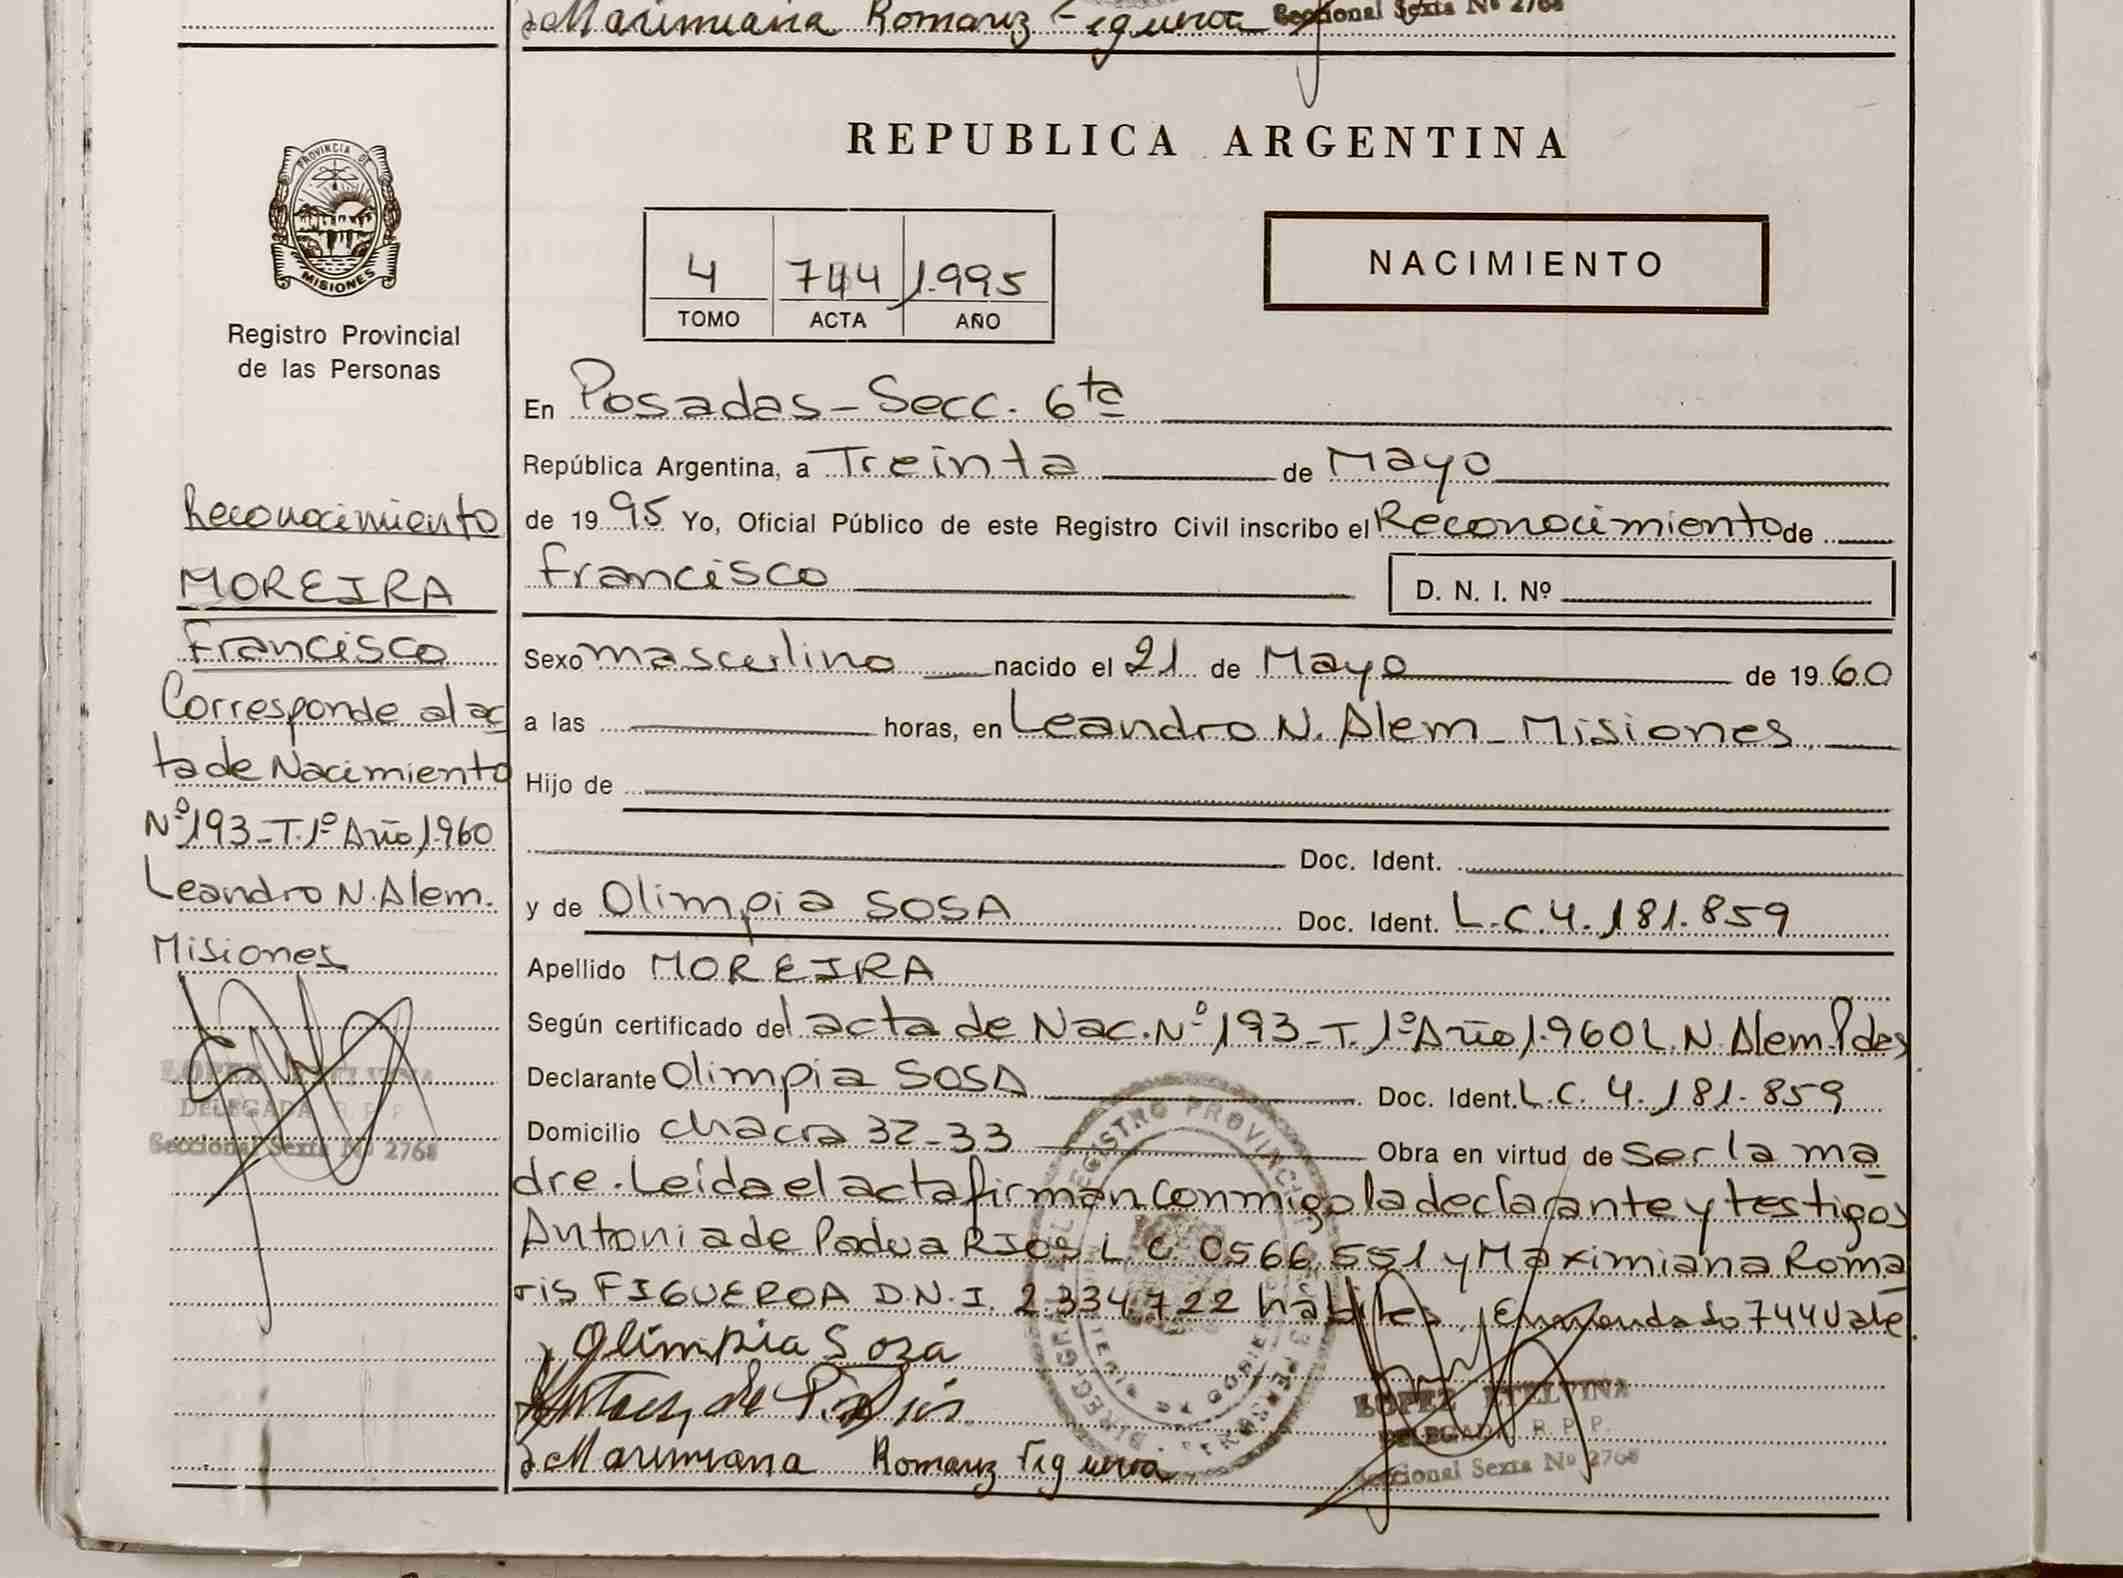 Maximiana Romariz Figueroa Seccional Sexta Nº 2768
PROVINCIA DE
MISIONES
Registro Provincial
de las Personas
Reconocimiento
MOREIRA
Francisco
Corresponde al ac
ta de Nacimiento
Nº 193-T.1º Año 1.960
Leandro N. Alem.
Misiones
LOPEZ ETELVINA
DELEGADA R. P. P.
Seccional Sexta Nº 2768
REPUBLICA ARGENTINA
4 744 1.995
TOMO ACTA AÑO
NACIMIENTO
En Posadas - Secc. 6ta
República Argentina, a Treinta de Mayo
de 19 95 Yo, Oficial Público de este Registro Civil inscribo el Reconocimiento de
Francisco D. N. I. Nº
Sexo masculino nacido el 21 de Mayo de 19 60
a las horas, en Leandro N. Alem - Misiones
Hijo de
Doc. Ident.
y de Olimpia SOSA Doc. Ident. L.C. 4.181.859
Apellido MOREIRA
Según certificado del acta de Nac. Nº 193-T.1º Año 1.960 L.N. Alem. Pdas
Declarante Olimpia SOSA Doc. Ident. L.C. 4.181.859
Domicilio chacra 32-33 Obra en virtud de ser la ma
dre. Leída el acta firman conmigo la declarante y testigos
Antonia de Padua RIOS L C 0566.551 y Maximiana Roma
ris FIGUEROA D.N.I. 2.334.722 hábiles, Enmendado 744 Vale.
Olimpia Soza
Maximiana Romariz Figueroa
LOPEZ ETELVINA
DELEGADA R. P. P.
Seccional Sexta Nº 2768